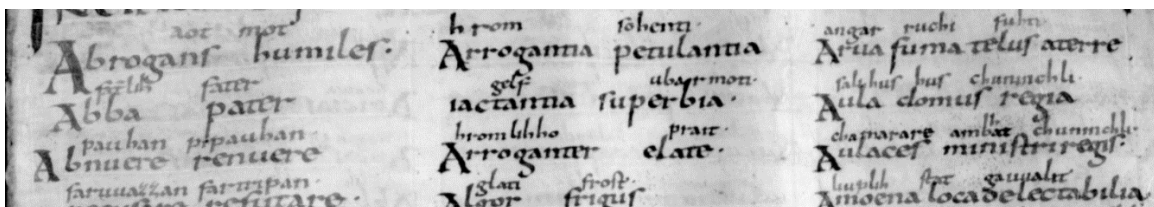 aot mot
Abrogans humiles.
fat̄lih fater
Abba pater
pauhan pipauhan.
Abnuere renuere
faruuazzan fartripan.
recusare refutare.
hrom sohenti.
Arrogantia petulantia
gelf ubarmoti.
iactantia superbia.
hromlihho prait.
Arroganter elate.
glati frost.
Algor frigus
angar ruchi fuhti
Arua suma telus aterre
salihus hus chuninchli.
Aula domus regia
chaparare ambaht chuninchli.
Aulaces ministri regis.
liuplih stat gauualit
Amoena loca delectabilia